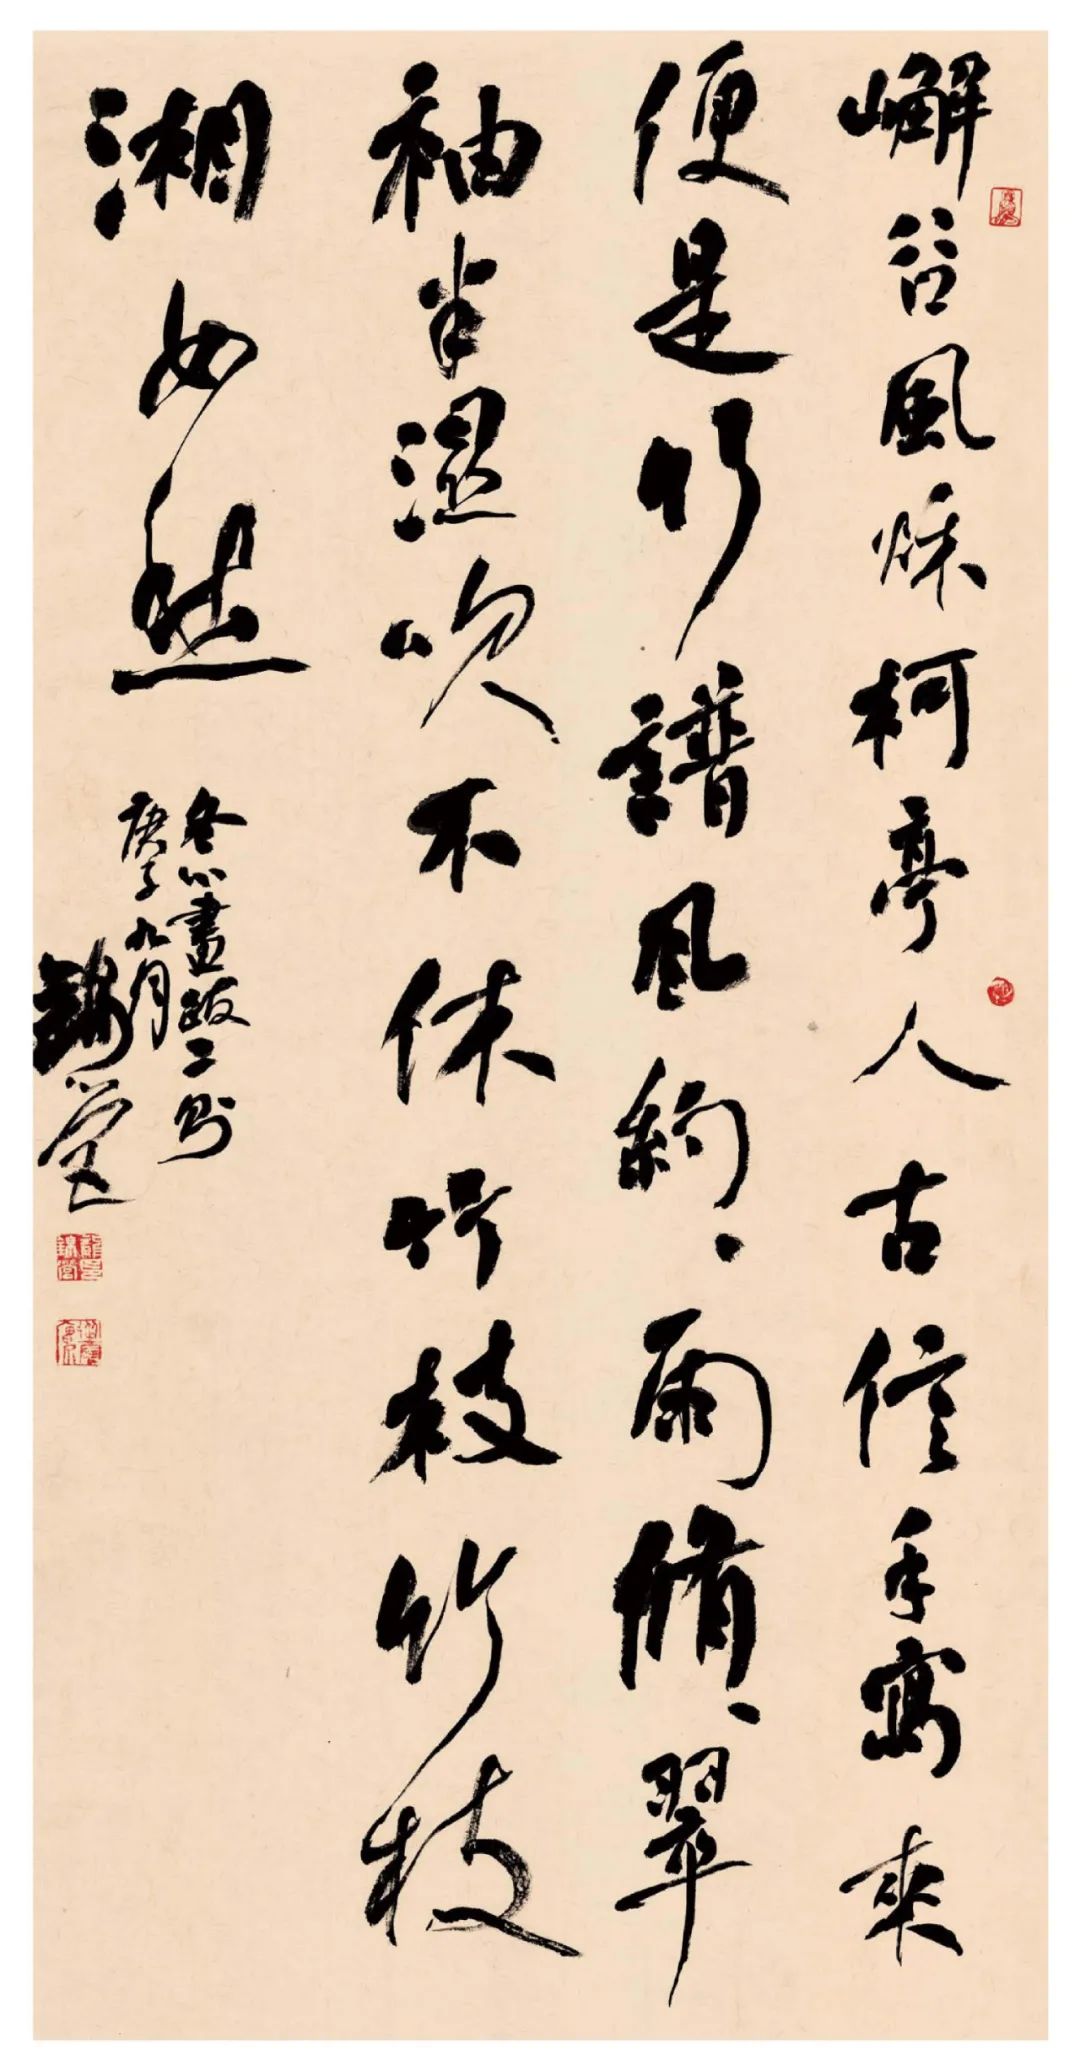 嶰谷風秌柯亭人古信手寫來
便是竹譜風約、雨脩、翠
袖半濕吹不休竹枝竹枝
湘女愁
冬心畫跋二則
庚子九月